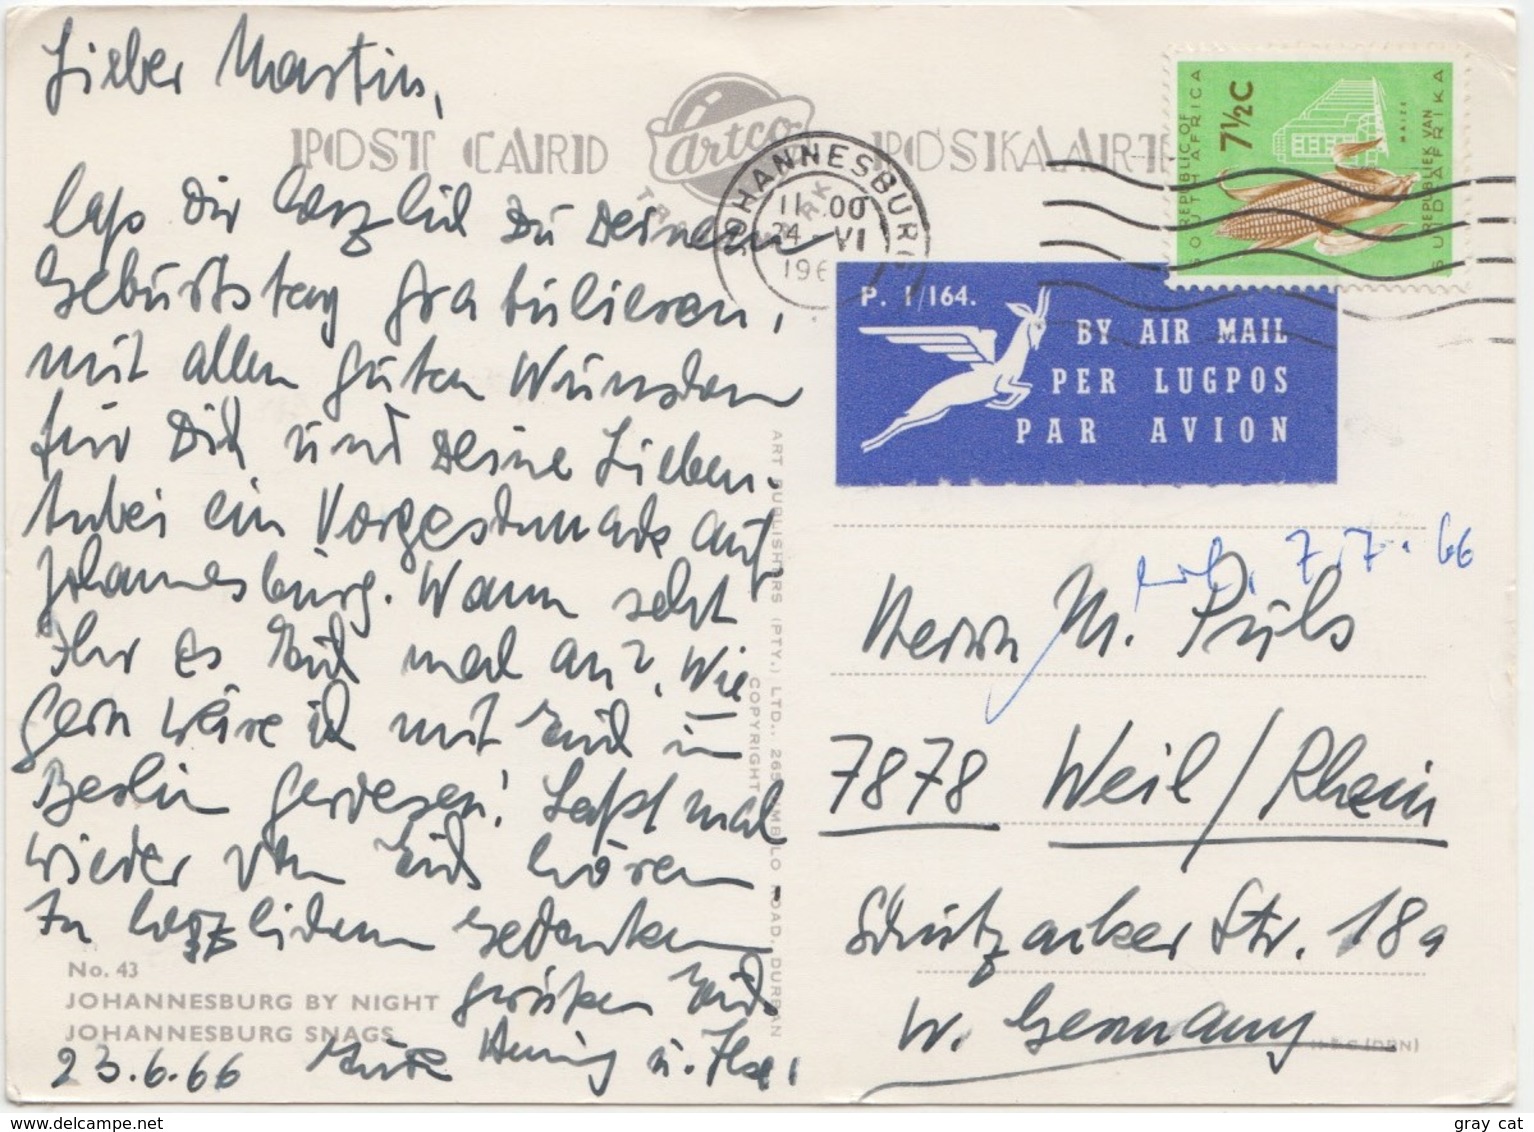 Lieber Martin,
POST CARD
artco
POSKAARTE
laß Dir herzlich zu Deinem
Geburtstag gratulieren,
mit allen guten Wünschen
für Dich und Deine Lieben.
Anbei ein Vorgeschmack auf
Johannesburg. Wann seht
Ihr es Euch mal an?, Wie
gern wäre ich mit Euch in
Berlin gewesen! Laßt mal
wieder von Euch hören
In herzlichem Gedenken
grüßen Euch
Henning u. Ilse,
23.6.66
No. 43
JOHANNESBURG BY NIGHT
JOHANNESBURG SNAGS
ART PUBLISHERS (PTY.) LTD., 265 UMBILO ROAD, DURBAN
COPYRIGHT
JOHANNESBURG
11.00
24 VI
196
REPUBLIC OF
SOUTH AFRICA
7½C
MAIZE
REPUBLIEK VAN
SUID-AFRIKA
P. 1/164.
BY AIR MAIL
PER LUGPOS
PAR AVION
7.7.66
Herrn M. Puls
7878 Weil/Rhein
Schützacker Str. 18a
W. Germany
(DBN)
gray_cat
www.delcampe.net